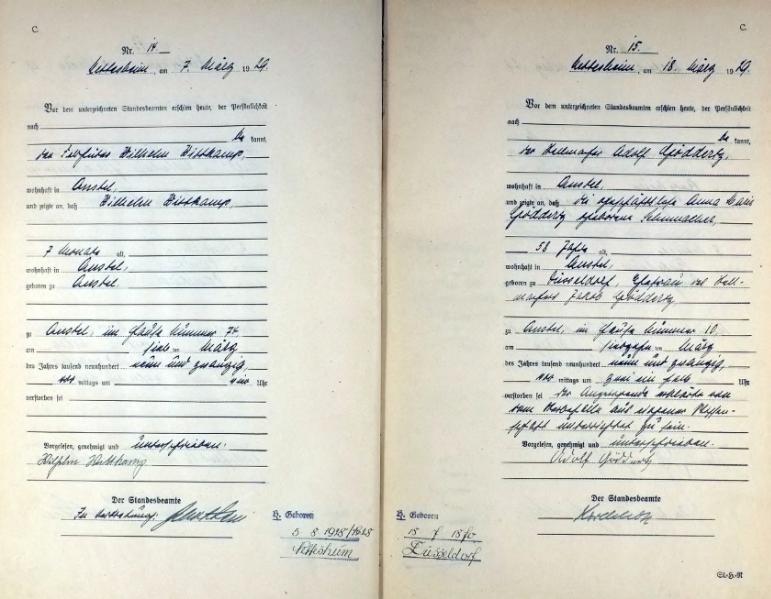 C.
Nr. 14
Nettesheim, am 7. März 1929.
Vor dem unterzeichneten Standesbeamten erschien heute, der Persönlichkeit
nach
be kannt,
der Wilhelm Wittkamp,
wohnhaft in Anstel,
und zeigte an, daß Wilhelm Wittkamp,
7 Monate alt,
wohnhaft in Anstel,
geboren zu Anstel
zu Anstel, im Hause Nummer 74,
am März
des Jahres tausend neunhundert neun und zwanzig,
vor mittags um Uhr
verstorben sei
Vorgelesen, genehmigt und unterschrieben.
Wilhelm Wittkamp
Der Standesbeamte
In Vertretung:
H. Geboren
5 8 1928
Nettesheim
C.
Nr. 15.
Nettesheim, am 18. März 1929.
Vor dem unterzeichneten Standesbeamten erschien heute, der Persönlichkeit
nach
be kannt,
der Adolf Göddertz,
wohnhaft in Anstel,
und zeigte an, daß die Anna Maria
Göddertz geborene Schumacher,
58 Jahre alt,
wohnhaft in Anstel,
geboren zu Düsseldorf, Ehefrau des
Jakob Göddertz
zu Anstel, im Hause Nummer 10,
am März
des Jahres tausend neunhundert neun und zwanzig,
vor mittags um Uhr
verstorben sei der Anzeigende erklärte von
dem Sterbefalle aus eigener Wissen-
schaft unterrichtet zu sein.
Vorgelesen, genehmigt und unterschrieben.
Adolf Göddertz
Der Standesbeamte
H. Geboren
18 7 1870
Düsseldorf